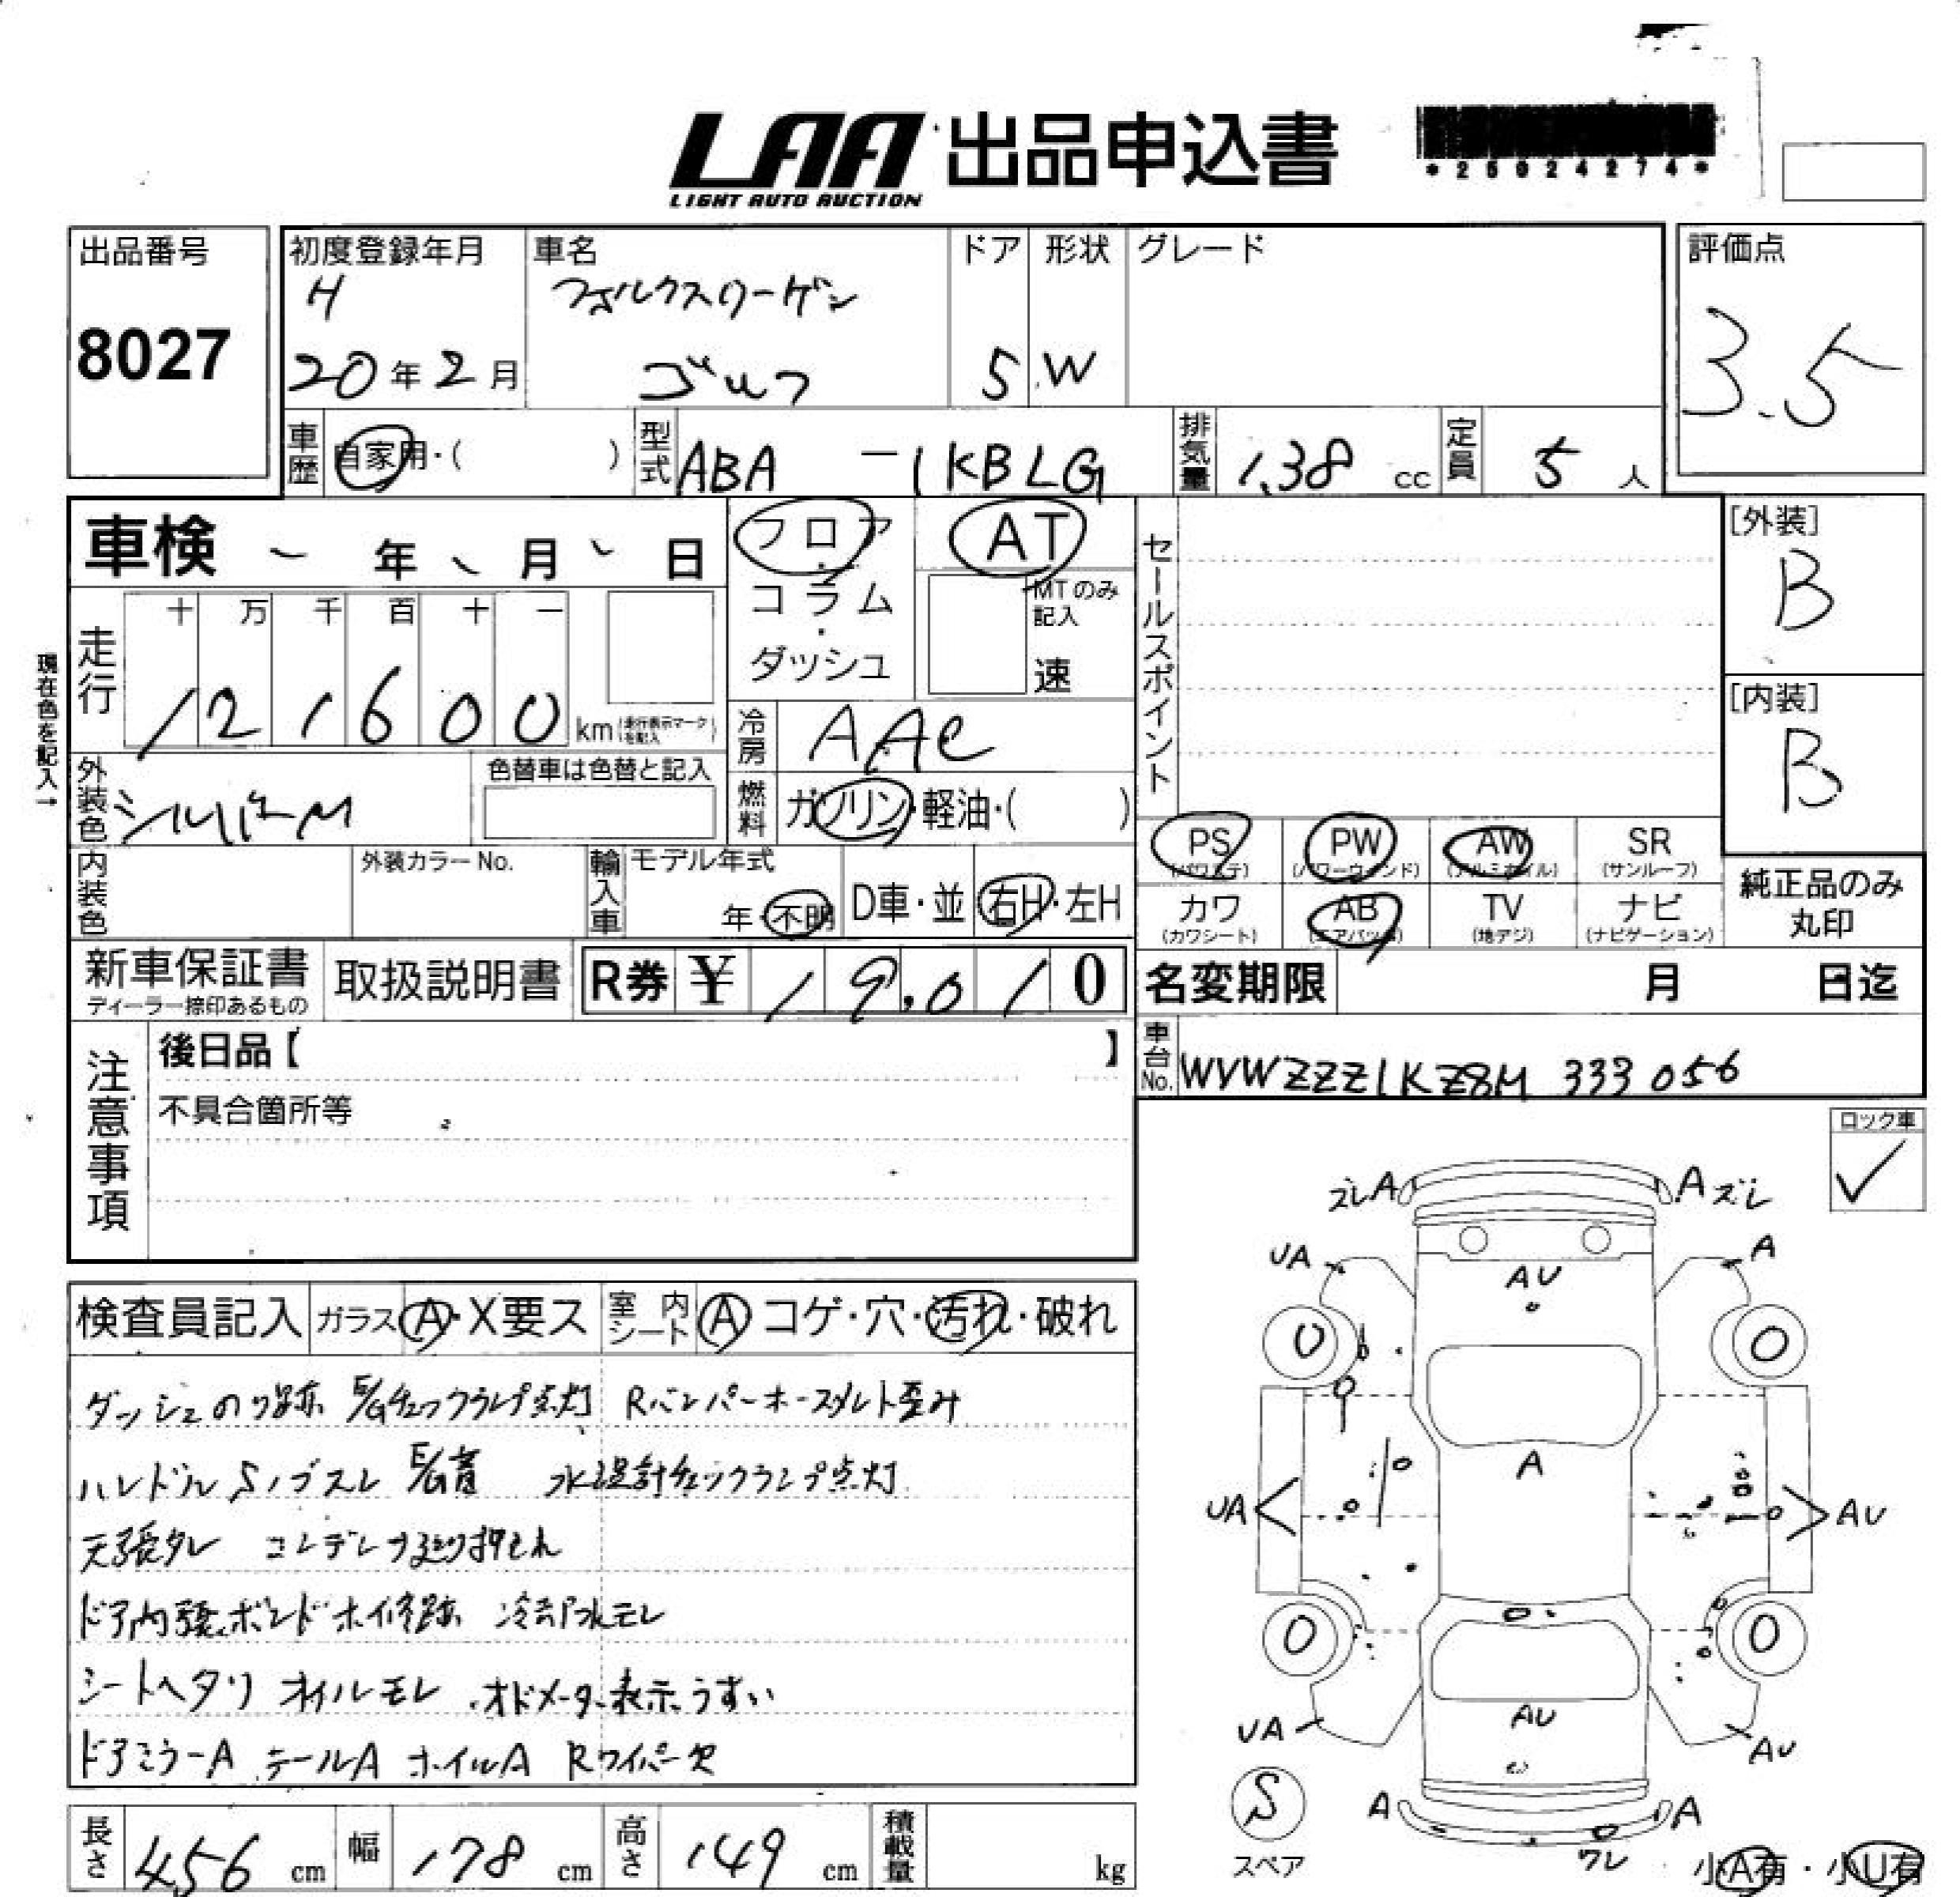 LAA 出品申込書
LIGHT AUTO AUCTION
*25024274*
出品番号 初度登録年月 車名 ドア 形状 グレード 評価点
8027
H
20年2月
フォルクスワーゲン
ゴルフ
5 W
3.5
車歴 自家用・( ) 型式 ABA -1KBLG 排気量 1.38 cc 定員 5 人
車検 年 月 日
フロア・コラム・ダッシュ
AT
MTのみ記入
速
セールスポイント
[外装]
B
[内装]
B
現在色を記入→
走行 十 万 千 百 十 一
121600 km (走行表示マークを記入)
冷房 AAC
外装色 シルバーM 色替車は色替と記入
燃料 ガソリン・軽油・( )
内装色 外装カラーNo. 輸入車 モデル年式
年・不明 D車・並 右H・左H
PS (パワステ) PW (パワーウインド) AW (アルミホイル) SR (サンルーフ)
カワ (カワシート) AB (エアバッグ) TV (地デジ) ナビ (ナビゲーション)
純正品のみ丸印
新車保証書 ディーラー捺印あるもの 取扱説明書 R券 ¥ 19.010
名変期限 月 日迄
注意事項 後日品【 】
車台No. WVWZZZ1KZ8M 333056
不具合箇所等
ロック車
✓
検査員記入 ガラス A・X要ス 室内シート A コゲ・穴・汚れ・破れ
ダッシュのり跡 E/Gチェックランプ点灯 Rバンパーホースメント歪み
ハンドルS ノブスレ E/G音 水温計チェックランプ点灯
天張タレ コンデンサ廻り押され
ドア内張ボンドホイ修跡 冷却水モレ
シートヘタリ オイルモレ オドメーター表示うすい
ドアミラーA テールA ホイルA Rワイパー欠
ズレA Aズレ
UA A
AU
0 0
A
UA AU
0 0
AU
UA AU
S
スペア
A A
ワレ
小A有・小U有
長さ 456 cm 幅 178 cm 高さ 149 cm 積載量 kg